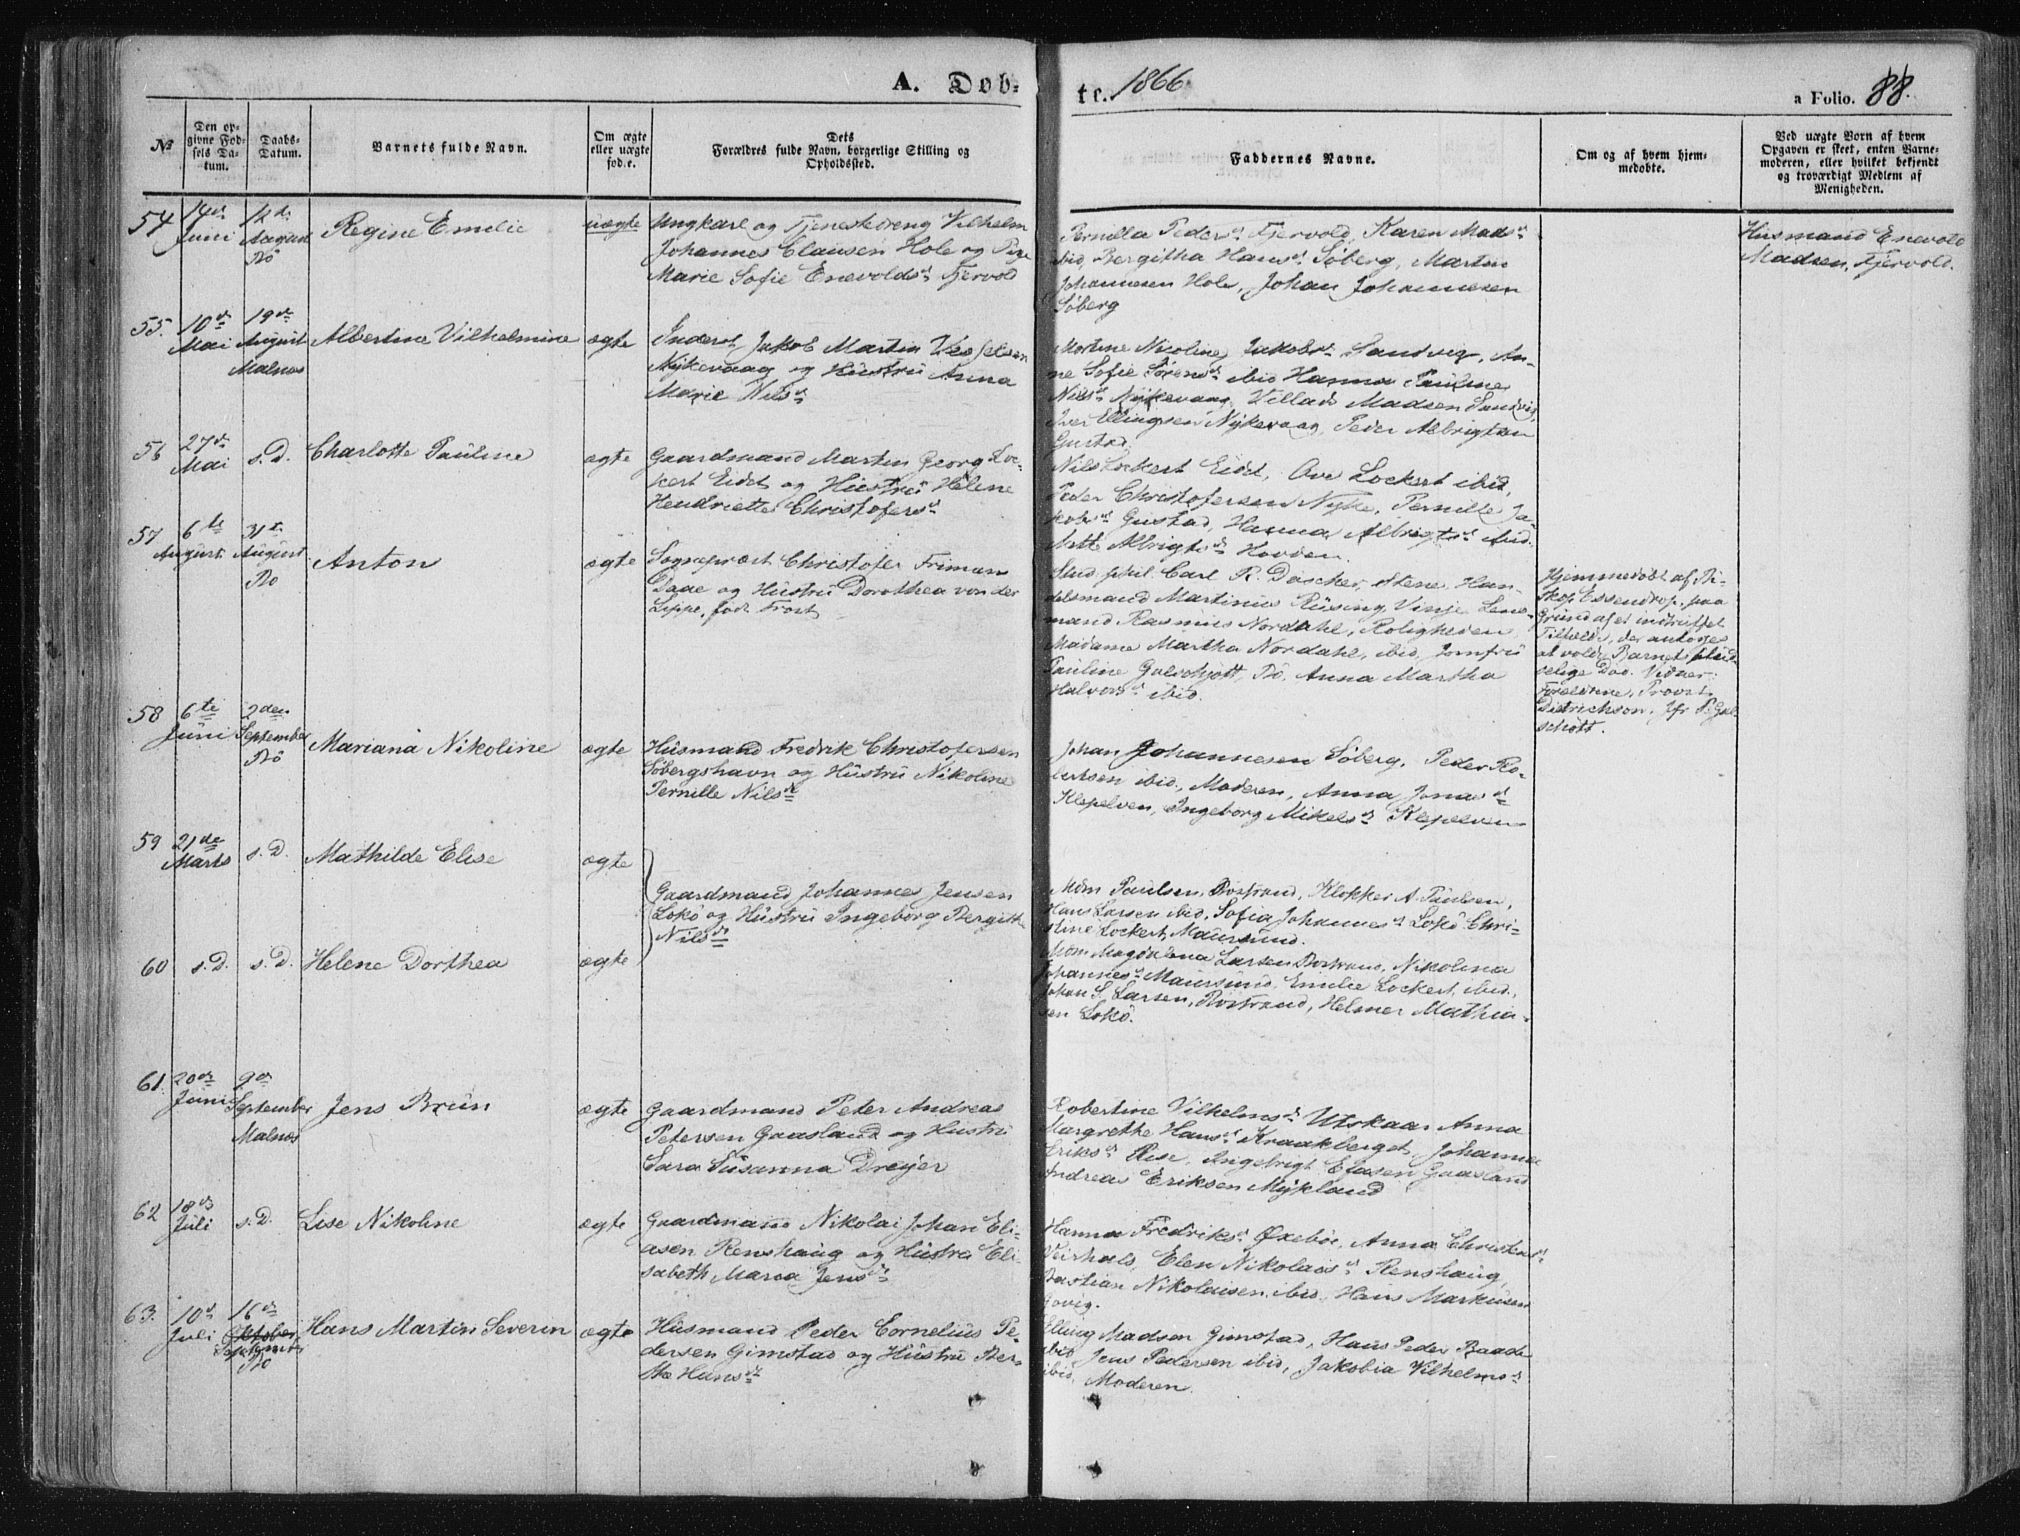 A. Døb-
te. 1866
a Folio. 88.
№
Den op-
givne Fød-
sels Da-
tum.
Daabs-
Datum.
Barnets fulde Navn.
Om ægte
eller uægte
fød.e.
Dets
Forældres fulde Navn, borgerlige Stilling og
Opholdssted.
Faddernes Navne.
Om og af hvem hjem-
medøbte.
Ved uægte Born af hvem
Opgaven er skeet, enten Barne-
moderen, eller hvilket bekjendt
og troværdigt Medlem af
Menigheden.
54
14de
Juni
12 de
August
Bö
Regine Emilie
uægte
Ungkarl og Tjenestedreng Vilhelm
Johannes Clausen Hole og Pige
Marie Sofie Enevoldsd Fjervold
Pernilla Pedersd Fjervold, Karen Madsd
ibid, Bergitha Hansd Söberg, Martin
Johannesen Hole, Johan Johannesen
Söberg
Husmand Enevold
Madsen, Fjervold.
55.
10de
Mai
19de
August
Malnæs
Albertine Vilhelmine
ægte
Inderst Jakob Martin
Nÿkevaag og Hustru Anna
Marie Nilsd
Mortine Nicoline Jakobsd Sandvig, An-
ne Sofie Sörensd ibid Hanna Pauline
Nilsd Nÿkevaag, Villads Madsen Sandvig,
Iver Ellingsen Nÿkevaag, Peder Albrigtsen
Gustad.
56
27de
Mai
s. D.
Charlotte Pauline
ægte
Gaardmand Martin Georg Loc-
kert Eidet og Hustru Helene
Hendriette Christofersd
Nils Lockert Eidet, Ove Lockert ibid,
Peder Christofersen Nÿke, Pernille Ja-
kobsd Gustad, Hanna Albrigtsd ibid.
Mette Albrigtsd Hovden.
57
6te
August
31te
August
Bö
Anton
ægte
Sognepræst Christofer Friman
Daae og Hustru Dorothea von der
Lippe, född Frost
Stud. phil. Carl R. Döscher, Stene, Han-
delsmand Martinius Rüsing Vinje Lens-
mand Rasmus Nordahl, Roligheden,
Madame Martha Nordahl, ibid, Jomfru
Pauline Galschjött, Bö. Anna Martha
Halvorsd ibid.
Hjemmedøbt af Bi-
skop Essendrop, paa
Grund af et indtruffet
Tilfælde, der antoges
at volde Barnets
selige Död. Vidner:
Forældrene, Provst
Dietrichson, Jfr P. Gal-
schött.
58
6te
Juni
2den
September
Bö
Mariana Nikoline
ægte
Husmand Fredrik Christofersen
Söbergshavn og Hustru Nikoline
Pernille Nilsd
Johan Johannesen Söberg, Peder Ro-
bertsen ibid, Moderen, Anna Jonasd
Klepelven, Ingeborg Mikelsd Klepelven
59
21de
Marts
s. D.
Mathilde Elise
ægte
Gaardmand Johannes Jensen
Lokö og Hustru Ingeborg Bergitte
Nilsd
Mdm Paulsen, Bostrand, Klokker A. Paulsen,
Hans Larsen ibid, Sofia Johannesd Lokö Chri-
stine Lockert, Maursund.
60
s. D.
s. D.
Helene Dorthea
ægte
Mdm Magdalena Larsen Bostrand, Nikolina
Johannesd Maursund, Emilie Lockert, ibid,
Johan S. Larsen, Bostrand, Helmer Mathia-
sen Lokö.
61.
20de
Juni
9de
September
Malnæs
Jens Brün
ægte
Gaardmand Peter Andreas
Petersen Gaasland og Hustru
Sara Susanna Dreÿer
Robertine Vilhelmsd Utskaar Anna
Margrethe Hansd Kraakberget, Johanna
Eriksd Rise, Ingebrigt Eliasen Gaasland
Andreas Eriksen Mÿkland
62
18de
Juli
s. D.
Lise Nikoline
ægte
Gaardmand Nikolai Johan Eli-
asen Renshaug og Hustru Eli-
sabeth Maria Jensd
Hanna Fredriksd Öxebö, Anna Christensd
Veirhals, Elen Nikolaisd Renshaug,
Bastian Nikolaisen ibid, Hans Markusen
63.
10de
Juli
16de
Oktober
September
Bö
Hans Martin Severin
ægte
Husmand Peder Cornelius Pe-
dersen Gimstad og Hustru Ber-
the Hansd
Elling Madsen Gimstad, Hans Peder Baade
ibid Jens Pedersen ibid, Jakobia Vilhelmsd
ibid, Moderen.